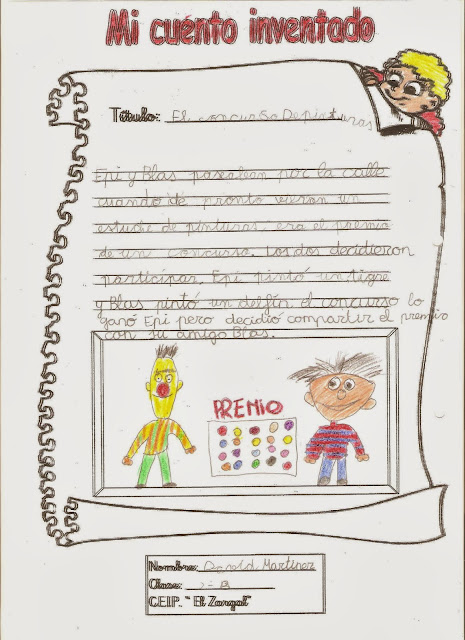 Mi cuento inventado
Título: El concurso De pinturas
Epi y Blas paseaban por la calle
cuando de pronto vieron un
estuche de pinturas, era el premio
de un concurso. Los dos decidieron
participar. Epi pintó un tigre
y Blas pintó un delfín. el concurso lo
ganó Epi pero decidió compartir el premio
con su amigo Blas.
PREMIO
Nombre: David Martínez
Clase: 2º B
CEIP. "El Zargal"